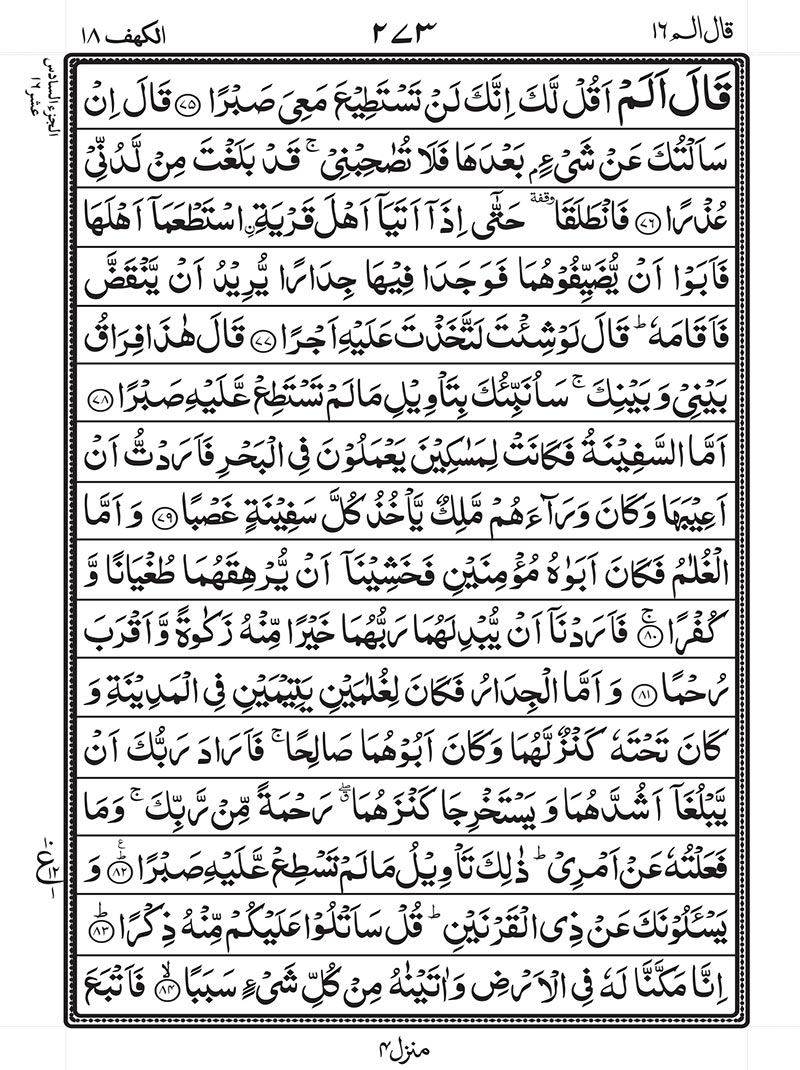 قال الم ١٦
٢٧٣
الكهف ١٨
الجزء السادس عشر ١٦
قَالَ اَلَمْ اَقُلْ لَّكَ اِنَّكَ لَنْ تَسْتَطِيْعَ مَعِيَ صَبْرًا ﴿٧٥﴾ قَالَ اِنْ
سَاَلْتُكَ عَنْ شَيْءٍۭ بَعْدَهَا فَلَا تُصٰحِبْنِيْ ۚ قَدْ بَلَغْتَ مِنْ لَّدُنِّيْ
عُذْرًا ﴿٧٦﴾ فَانْطَلَقَا وقفة حَتّٰۤى اِذَاۤ اَتَيَاۤ اَهْلَ قَرْيَةِ ࣙاسْتَطْعَمَاۤ اَهْلَهَا
فَاَبَوْا اَنْ يُّضَيِّفُوْهُمَا فَوَجَدَا فِيْهَا جِدَارًا يُّرِيْدُ اَنْ يَّنْقَضَّ
فَاَقَامَهٗ ؕ قَالَ لَوْ شِئْتَ لَتَّخَذْتَ عَلَيْهِ اَجْرًا ﴿٧٧﴾ قَالَ هٰذَا فِرَاقُ
بَيْنِيْ وَ بَيْنِكَ ۚ سَاُنَبِّئُكَ بِتَاْوِيْلِ مَا لَمْ تَسْتَطِعْ عَّلَيْهِ صَبْرًا ﴿٧٨﴾
اَمَّا السَّفِيْنَةُ فَكَانَتْ لِمَسٰكِيْنَ يَعْمَلُوْنَ فِي الْبَحْرِ فَاَرَدْتُّ اَنْ
اَعِيْبَهَا وَكَانَ وَرَآءَهُمْ مَّلِكٌ يَّاْخُذُ كُلَّ سَفِيْنَةٍ غَصْبًا ﴿٧٩﴾ وَ اَمَّا
الْغُلٰمُ فَكَانَ اَبَوٰهُ مُؤْمِنَيْنِ فَخَشِيْنَاۤ اَنْ يُّرْهِقَهُمَا طُغْيَانًا وَّ
كُفْرًا ۚ ﴿٨٠﴾ فَاَرَدْنَاۤ اَنْ يُّبْدِلَهُمَا رَبُّهُمَا خَيْرًا مِّنْهُ زَكٰوةً وَّ اَقْرَبَ
رُحْمًا ﴿٨١﴾ وَ اَمَّا الْجِدَارُ فَكَانَ لِغُلٰمَيْنِ يَتِيْمَيْنِ فِي الْمَدِيْنَةِ وَ
كَانَ تَحْتَهٗ كَنْزٌ لَّهُمَا وَكَانَ اَبُوْهُمَا صَالِحًا ۚ فَاَرَادَ رَبُّكَ اَنْ
يَّبْلُغَاۤ اَشُدَّهُمَا وَ يَسْتَخْرِجَا كَنْزَهُمَا ۖق رَحْمَةً مِّنْ رَّبِّكَ ۚ وَمَا
فَعَلْتُهٗ عَنْ اَمْرِيْ ؕ ذٰلِكَ تَاْوِيْلُ مَا لَمْ تَسْطِعْ عَّلَيْهِ صَبْرًا ؕ ع ﴿٨٢﴾ وَ
يَسْـَٔلُوْنَكَ عَنْ ذِي الْقَرْنَيْنِ ؕ قُلْ سَاَتْلُوْا عَلَيْكُمْ مِّنْهُ ذِكْرًا ؕ ﴿٨٣﴾
اِنَّا مَكَّنَّا لَهٗ فِي الْاَرْضِ وَاٰتَيْنٰهُ مِنْ كُلِّ شَيْءٍ سَبَبًا ۙ ﴿٨٤﴾ فَاَتْبَعَ
منزل ٤